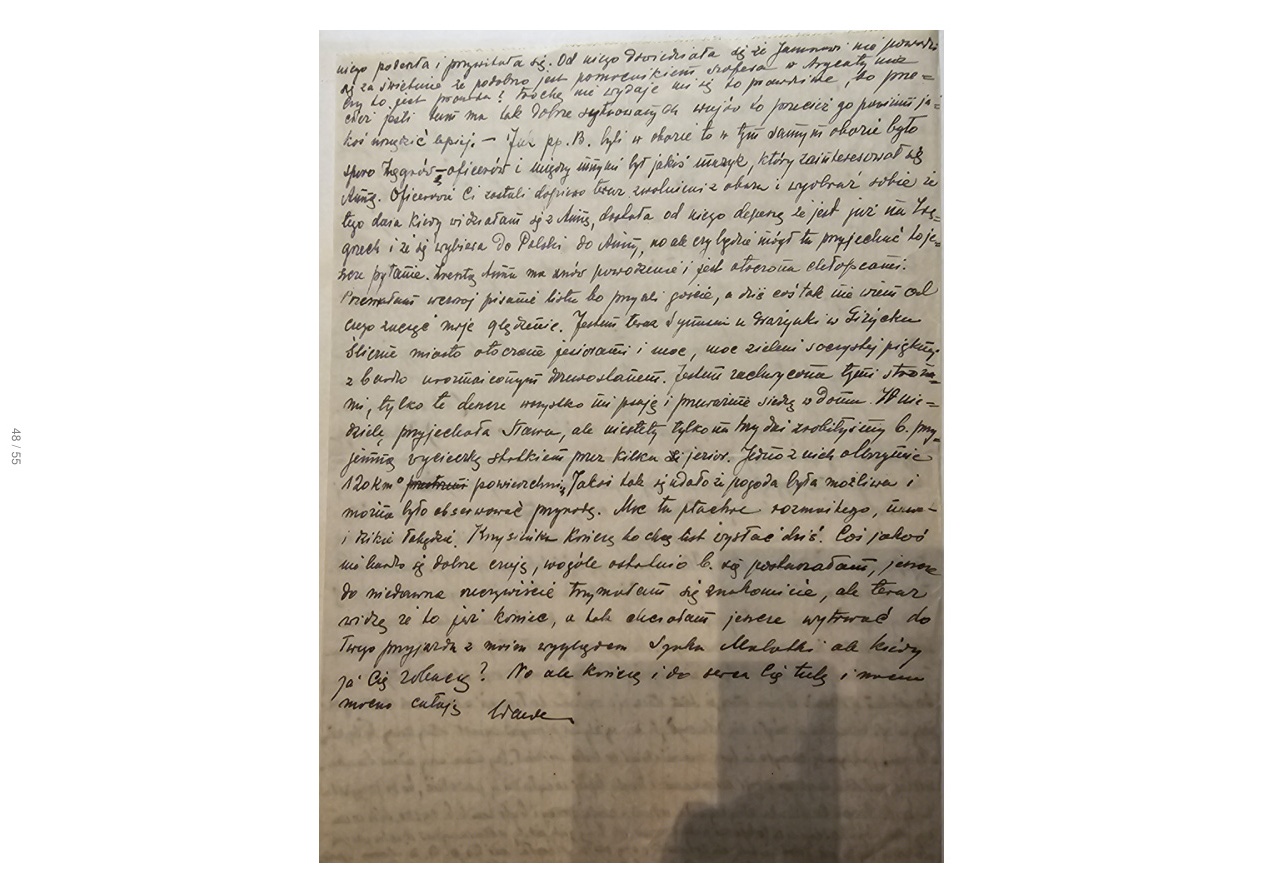 niego podeszła i przywitała się. Od niego dowiedziała się że Jasiowi nie powodzi
się za świetnie że podobno jest pomocnikiem szofera w Argenty
czy to jest prawda? Trochę nie wydaje mi się to prawdziwe, bo prze=
cież jeśli tam ma tak dobrze sytuowanych wujów to przecież go powinni ja=
koś urządzić lepiej. – Jak pp. B. byli w obozie to w tym samym obozie było
sporo Węgrów – oficerów i między innymi był jakiś muzyk, który zainteresował się
Anną. Oficerowie Ci zostali dopiero teraz zwolnieni z obozu i wyobraź sobie że
tego dnia kiedy widziałam się z Anną, dostała od niego depeszę że jest już na Wę=
grzech i że się wybiera do Polski do Anny, no ale czy będzie mógł tu przyjechać to je=
szcze pytanie. Zresztą Anna ma znów powodzenie i jest otoczona chłopcami.
Przerwałam wczoraj pisanie listu bo przyszli goście, a dziś coś tak nie wiem od
czego zacząć moje ględzenie. Jestem teraz z synami u Grażynki w Giżycku
Śliczne miasto otoczone jeziorami i moc, moc zieleni soczystej pięknej
z bardzo urozmaiconym drzewostanem. Jestem zachwycona tymi strona=
mi, tylko te deszcze wszystko mi psują i przeważnie siedzę w domu. W nie=
dzielę przyjechała Sława, ale niestety tylko na trzy dni zrobiłyśmy b. przy=
jemną wycieczkę statkiem przez kilka jezior. Jedno z nich olbrzymie
120 km° powierzchni, Jakoś tak się udało że pogoda była możliwa i
można było obserwować przyrodę. Moc tu ptactwa rozmaitego,
i dzikie łabędzie. Krysieńka kończę bo chcę list wysłać dziś. Coś jakoś
nie bardzo się dobrze czuję, wogóle ostatnio b. się postarzałam, jeszcze
do niedawna rzeczywiście trzymałam się znakomicie, ale teraz
widzę że to już koniec, a tak chciałam jeszcze wytrwać do
Twego przyjazdu z moim wyglądem Malutki ale kiedy
ja Cię zobaczę? No ale kończę i do serca Cię tulę i mocno
mocno całuję